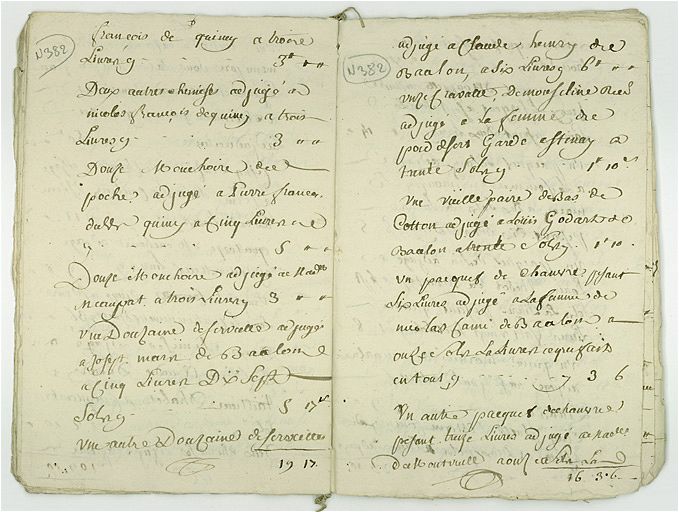 N 382
françois de quincy a troore
Livres 3 " "
Deux autres chemises adjugé a
nicolas françois de quincy a trois
Livres 3 " "
Douze Mouchoire de
poches adjugé a Pierre francois
quincy a Cinq Livres
5 " "
Douze Mouchoire adjugé a
a trois Livres 3 " "
une Douzaine de serviettes adjugés
a Josept de Baalon
a Cinq Livres Dix Sept
Solz 5 17
une autre Douzaine de serviettes
19 17
N 382
adjugé a Claude henry de
Baalon a six Livres 6 " "
unze Cravatte de mousseline
adjugé a La femme de
Garde estenay a
trente Solz 1 10
une vieille paire de Bas de
Cotton adjugé a Louis Godart de
Baalon a trente Solz 1 10
un pacquet de chanvre pesant
six Livres adjugé a La femme de
nicolas de Baalon a
onze solz La Livre
en tout 7 3 6
un autre pacquet de chanvre
pesant treize Livres adjugé a
de a onze solz La
16 3 6